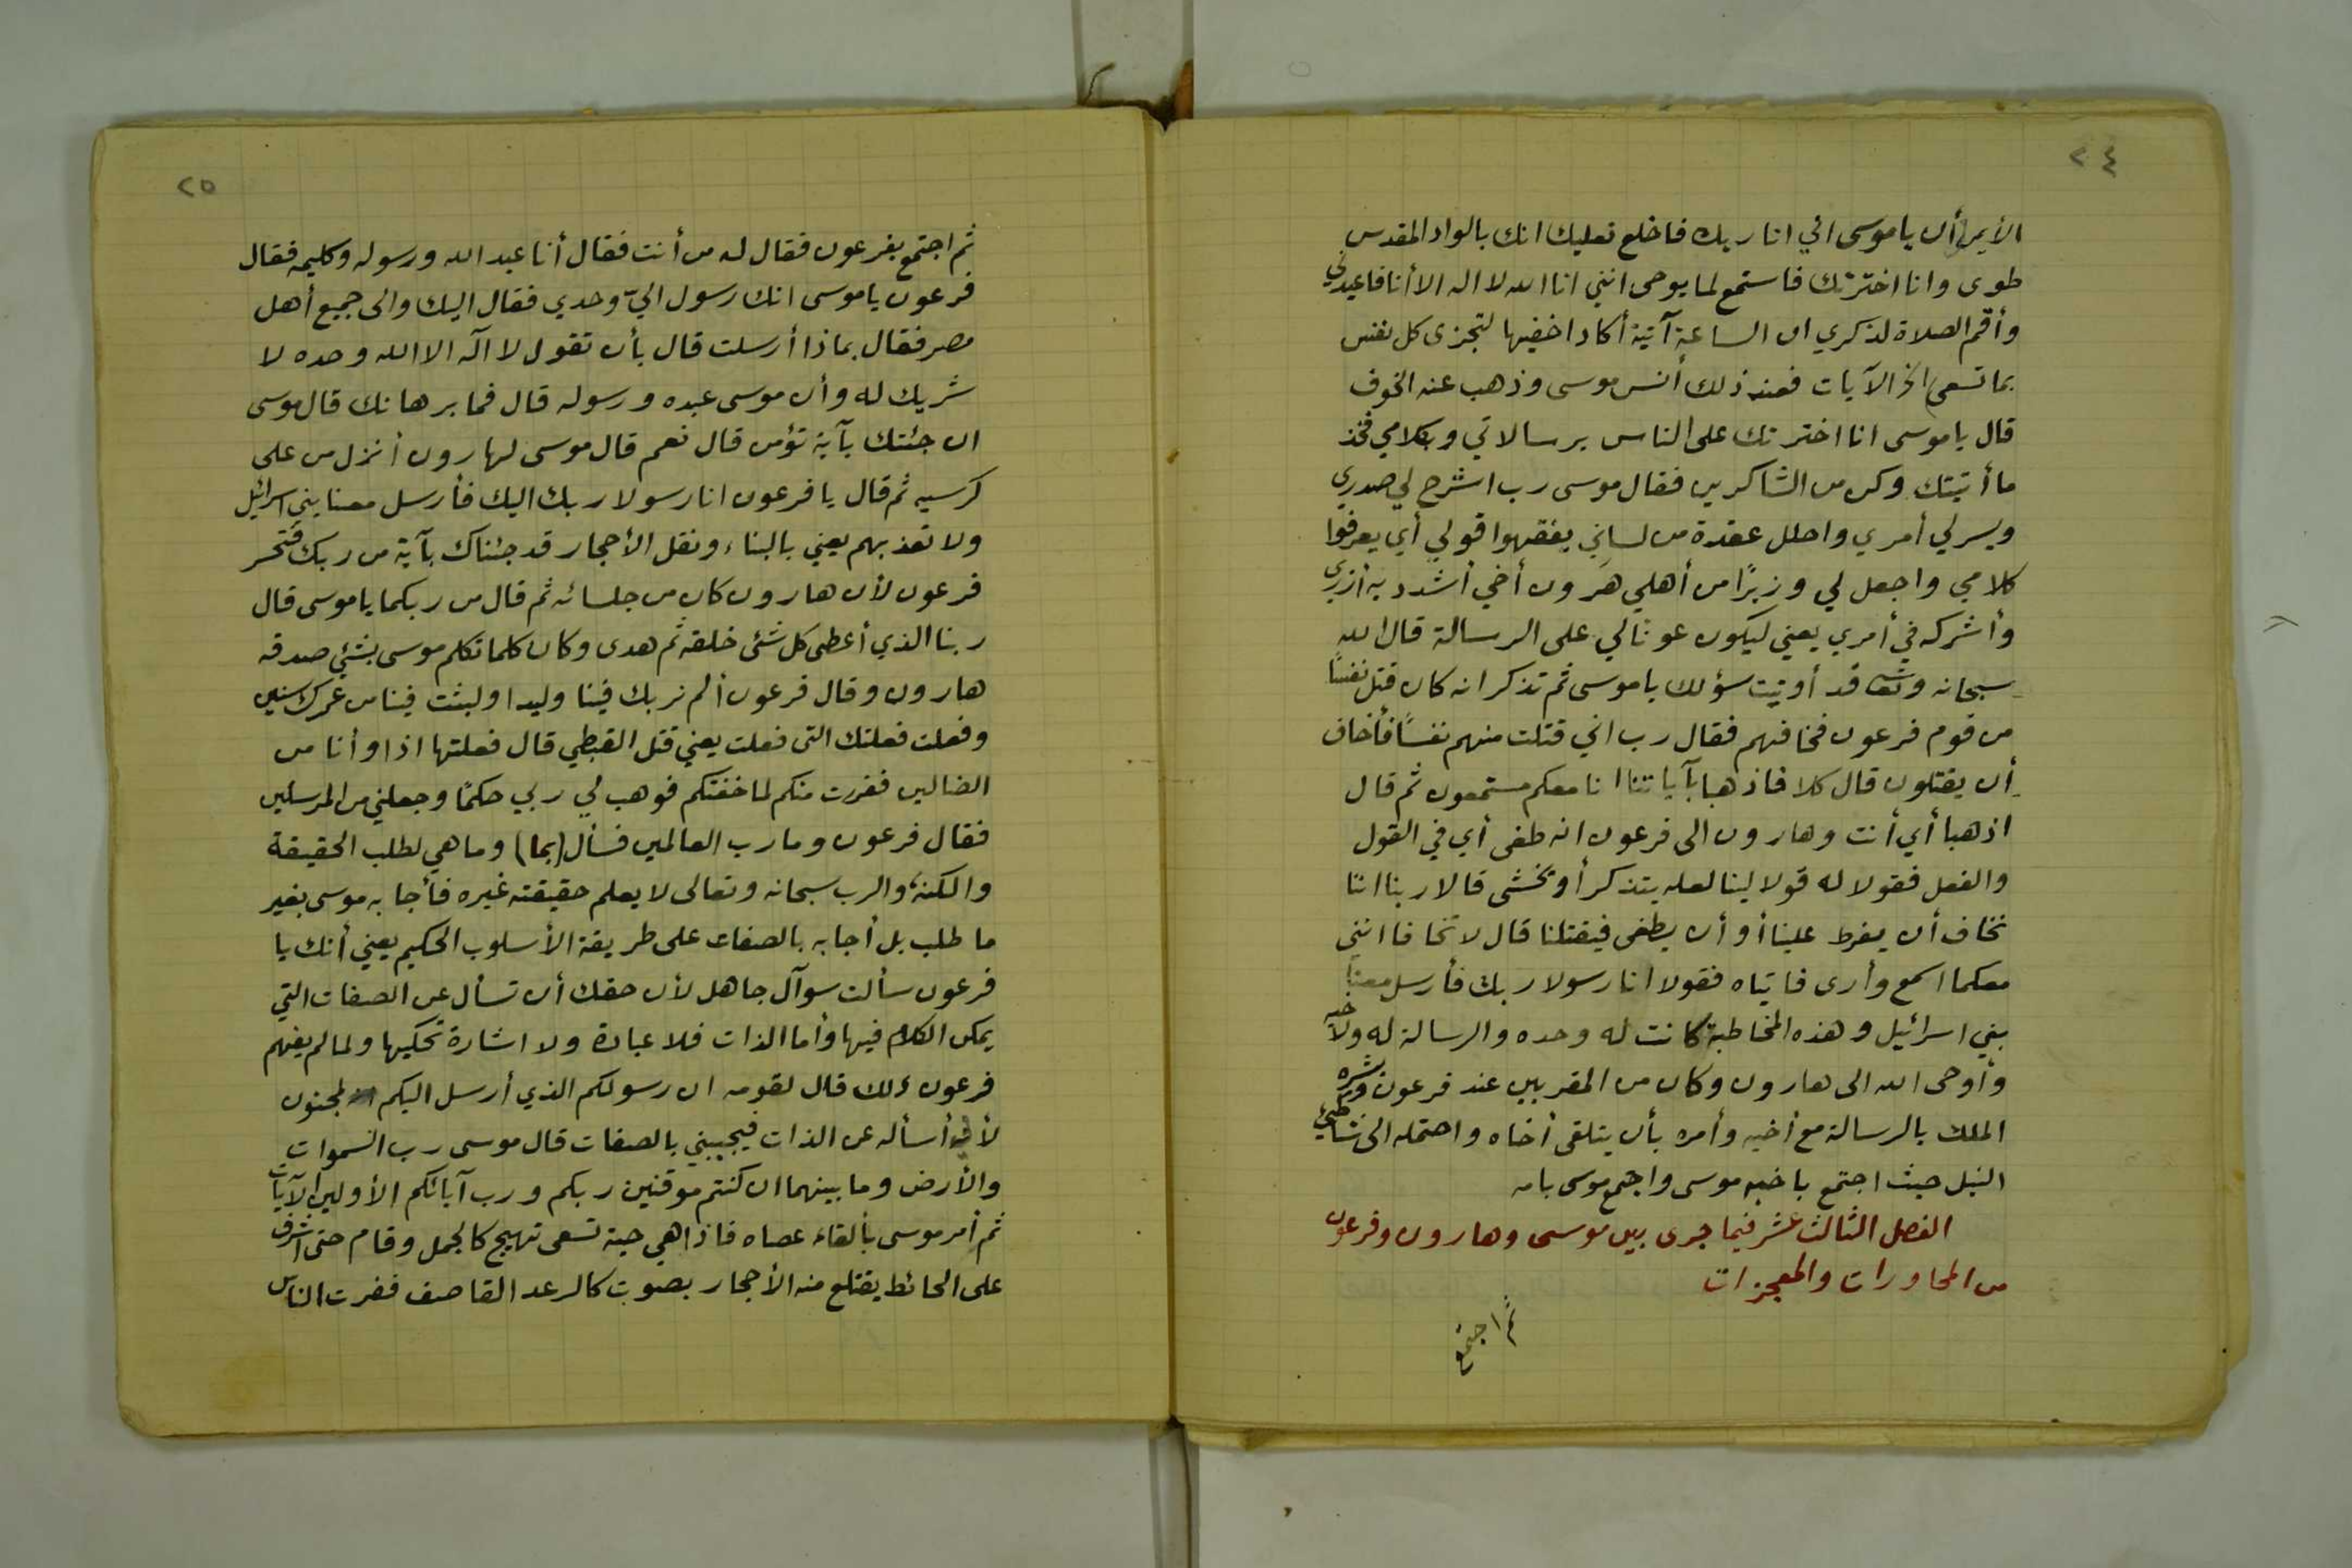 ٢٤
الأيمن أن يا موسى اني انا ربك فاخلع نعليك انك بالواد المقدس
طوى وانا اخترتك فاستمع لما يوحى انني انا الله لا اله الا أنا فاعبدني
وأقم الصلاة لذكري ان الساعة آتية أكاد اخفيها لتجزى كل نفس
بما تسعى الخ الآيات فعند ذلك أنس موسى وذهب عنه الخوف
قال يا موسى انا اخترتك على الناس برسالاتي وبكلامي فخذ
ما أتيتك وكن من الشاكرين فقال موسى رب اشرح لي صدري
ويسر لي أمري واحلل عقدة من لساني يفقهوا قولي أي يعرفوا
كلامي واجعل لي وزيرًا من أهلي هرون أخي أشدد به أزري
وأشركه في أمري يعني ليكون عونا لي على الرسالة قال الله
سبحانه وتعا قد أوتيت سؤلك يا موسى ثم تذكر انه كان قتل نفسًا
من قوم فرعون فخافهم فقال رب اني قتلت منهم نفسًا فأخاف
أن يقتلون قال كلا فاذهبا بآياتنا انا معكم مستمعون ثم قال
اذهبا أي أنت وهارون الى فرعون انه طغى أي في القول
والفعل فقولا له قولا لينا لعله يتذكر أو يخشى قالا ربنا اننا
نخاف أن يفرط علينا أو أن يطغى فيقتلنا قال لا تخافا انني
معكما اسمع وأرى فاتياه فقولا انا رسولا ربك فأرسل معنا
بني اسرائيل وهذه المخاطبة كانت له وحده والرسالة له ولأخيه
وأوحى الله الى هارون وكان من المقربين عند فرعون وبشره
الملك بالرسالة مع أخيه وأمره بأن يتلقى أخاه واحتمله الى شاطئ
النيل حيث اجتمع باخيه موسى واجتمع موسى بامه
الفصل الثالث عشر فيما جرى بين موسى وهارون وفرعون
من المحاورات والمعجزات
ثم اجتمع
٢٥
ثم اجتمع بفرعون فقال له من أنت فقال أنا عبد الله ورسوله وكليمه فقال
فرعون يا موسى انك رسول اليّ وحدي فقال اليك والى جميع أهل
مصر فقال بماذا أرسلت قال بأن تقول لا آله الا الله وحده لا
شريك له وأن موسى عبده ورسوله قال فما برهانك قال موسى
ان جئتك بآية تؤمن قال نعم قال موسى لهارون أنزل من على
كرسيه ثم قال يا فرعون انا رسولا ربك اليك فأرسل معنا بني اسرائيل
ولا تعذبهم يعني بالبناء ونقل الأحجار قد جئناك بآية من ربك فتحسر
فرعون لأن هارون كان من جلسائه ثم قال من ربكما يا موسى قال
ربنا الذي أعطى كل شئ خلقه ثم هدى وكان كلما تكلم موسى بشئ صدقه
هارون وقال فرعون ألم نربك فينا وليدا ولبثت فينا من عمرك سنين
وفعلت فعلتك التى فعلت يعني قتل القبطي قال فعلتها اذا وأنا من
الضالين ففررت منكم لما خفتكم فوهب لي ربي حكمًا وجعلني من المرسلين
فقال فرعون وما رب العالمين فسأل (بما) وما هي لطلب الحقيقة
والكنه والرب سبحانه وتعالى لا يعلم حقيقته غيره فأجابه موسى بغير
ما طلب بل أجابه بالصفات على طريقة الأسلوب الحكيم يعني أنك يا
فرعون سألت سوآل جاهل لأن حقك أن تسأل عن الصفات التي
يمكن الكلام فيها وأما الذات فلا عبارة ولا اشارة تحكيها ولما لم يفهم
فرعون ذلك قال لقومه ان رسولكم الذي أرسل اليكم لمجنون
لأني أسأله عن الذات فيجيبني بالصفات قال موسى رب السموات
والأرض وما بينهما ان كنتم موقنين ربكم ورب آبائكم الأولين الآيات
ثم أمر موسى بألقاء عصاه فاذا هي حية تسعى تهيج كالجمل وقام حتى أشرف
على الحائط يقتلع منه الأحجار بصوت كالرعد القاصف ففرت الناس